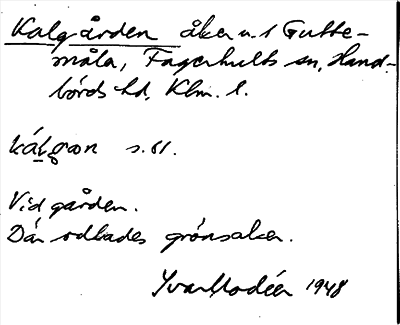 Kalgården åker n. 1 Gutte-
måla, Fagerhults sn, Hand-
börds hd, Klm. l.
s. 61.
Vid gården.
Där odlades grönsaker.
Ivar Modéer 1948